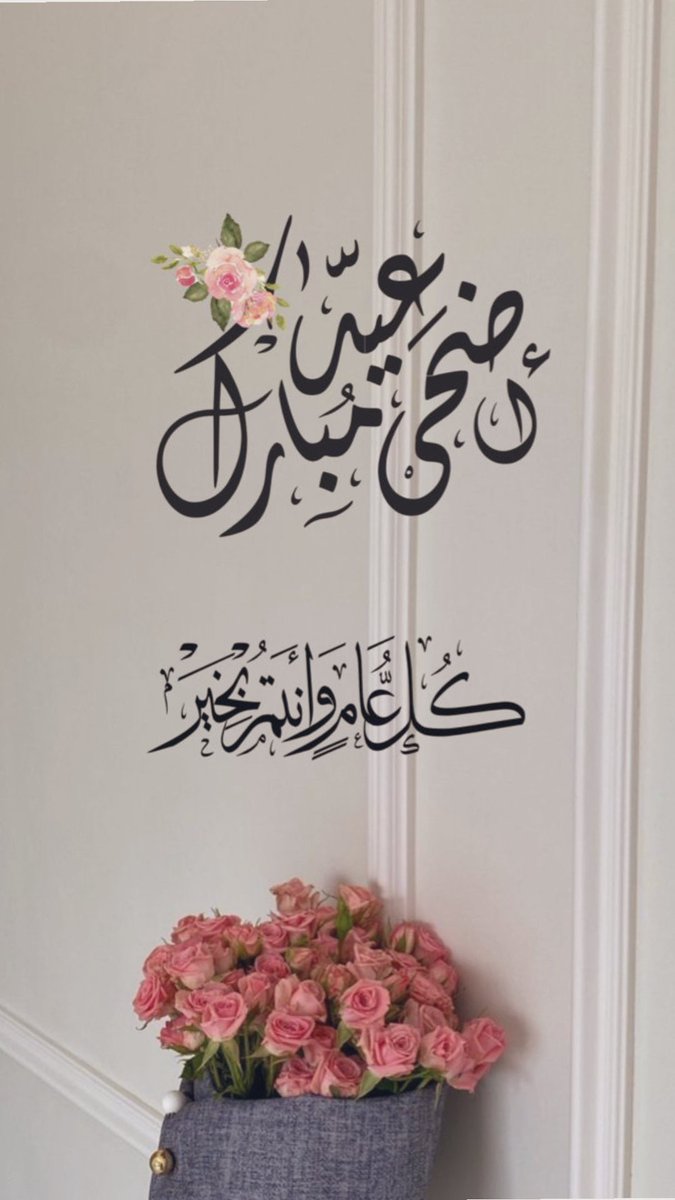 عِيدُ أضحى مُبارِك
كُلُّ عَامٍ وَأَنتُمْ بِخَيْرْ